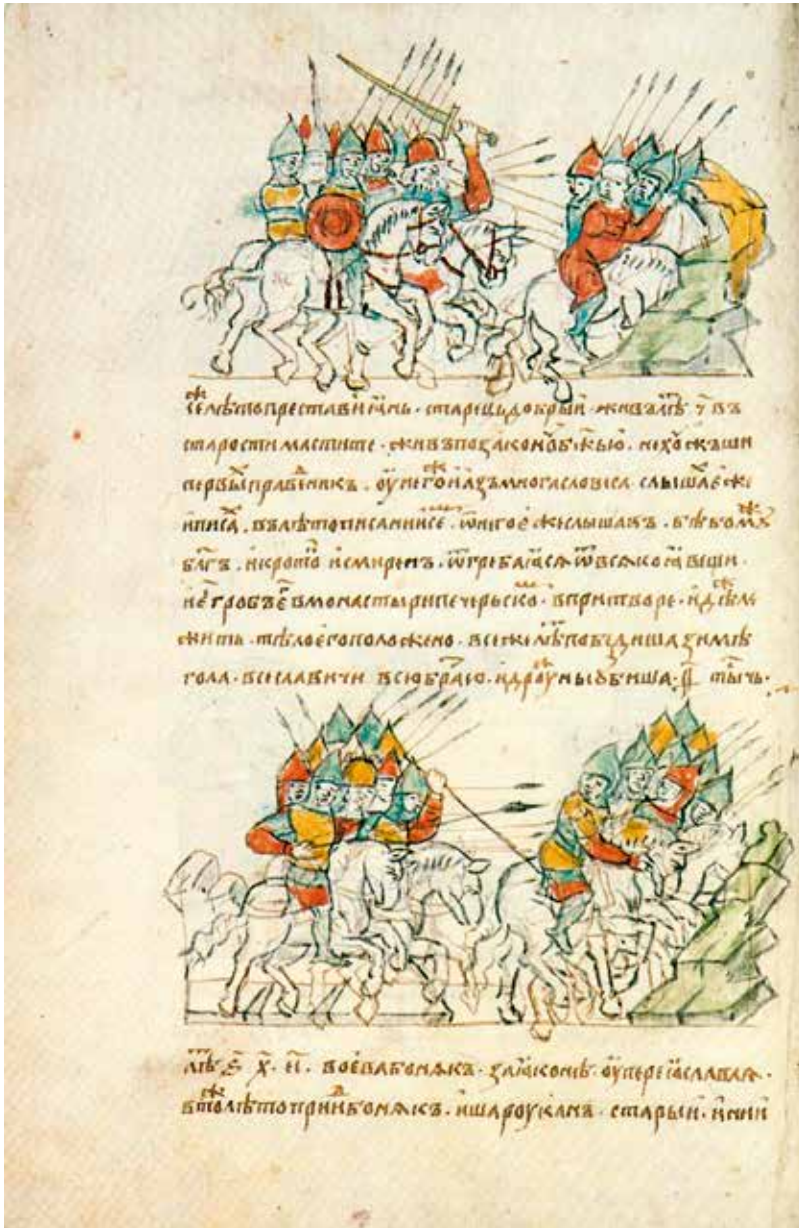 сеⷤ лѣто преставиⷭ ꙗнь · старець добрыи · живъ лѣⷮ ч҃ въ
старости маститѣ · живъ по законоу бж҃ью · не хоужьши
первыⷯ праⷡ҇еникъ · оу негоⷤ и азъ многа словеса слышаⷯ еже
и писаⷯ в лѣтописании се · ѿ него же слышахъ · бѣ бо моуⷤ
благъ · и кротоⷦ и смиренъ · ѿгребаꙗсѧ ѿ всѧкоꙗ вещи ·
и гробъ еⷭ в монастыри печерьскоⷨ · в притворе · идѣⷤ ле
жить · тѣло его положено · все же лѣⷮ побѣдиша зимѣ
гола · всеславичи всю браⷮю · и дроуⷤины оубиша · ҂ѳ҃ тыⷭчь ·
лѣⷮ ҂ѕ҃ х҃ еі҃ · воева бонѧкъ · заꙗ конѣ оу переꙗславлѧ ·
в тоⷤ лѣто приⷣ бонѧкъ · и шароукань · старыи · и инии